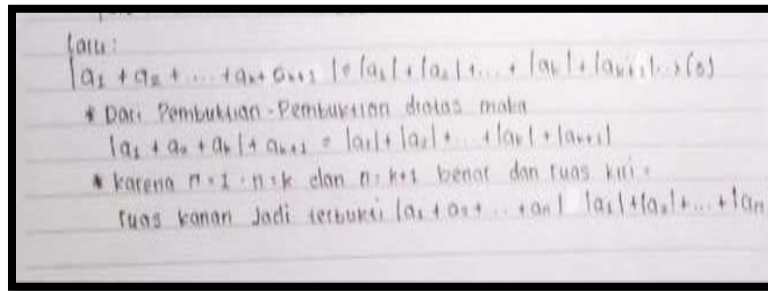 Lalu:
|a₁ + a₂ + ... + aₖ + aₖ₊₁| = |a₁| + |a₂| + ... + |aₖ| + |aₖ₊₁| ... (3)
* Dari Pembuktian-Pembuktian diatas maka
|a₁ + a₂ + aₖ| + aₖ₊₁ = |a₁| + |a₂| + ... + |aₖ| + |aₖ₊₁|
* karena n=1 . n=k dan n=k+1 benar dan ruas kiri =
ruas kanan Jadi terbukti |a₁ + a₂ + ... + aₙ| |a₁| + |a₂| + ... + |aₙ